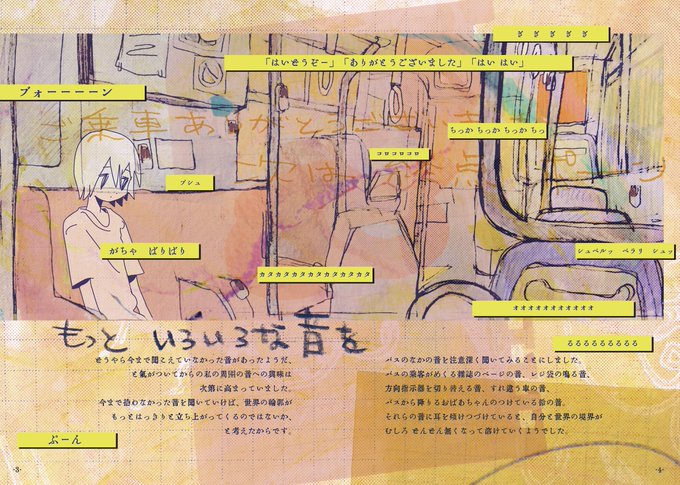 ぎ ぎ ぎ ぎ ぎ
「はいどうぞー」「ありがとうございました」「はい はい」
プォーーーーン
ご乗車ありがとうございます
次は
点
ポーン
ちっか ちっか ちっか ちっ
コロコロコロ
プシュ
がちゃ ぱりぱり
シュペルッ ペラリ シュッ
カタカタカタカタカタカタカタ
オオオオオオオオオオオ
もっと いろいろな音を
るるるるるるるるる
どうやら今まで聞こえていなかった音があったようだ、
と氣がついてからの私の周囲の音への興味は
次第に高まっていました。
今まで拾わなかった音を聞いていけば、世界の輪郭が
もっとはっきりと立ち上がってくるのではないか、
と考えたからです。
バスのなかの音を注意深く聞いてみることにしました。
バスの乗客がめくる雑誌のページの音、レジ袋の鳴る音、
方向指示器を切り替える音、すれ違う車の音、
バスから降りるおばあちゃんのつけている鈴の音。
それらの音に耳を傾けつづけていると、自分と世界の境界が
むしろ ぜんぜん無くなって溶けていくようでした。
ぶーん
-3-
-4-